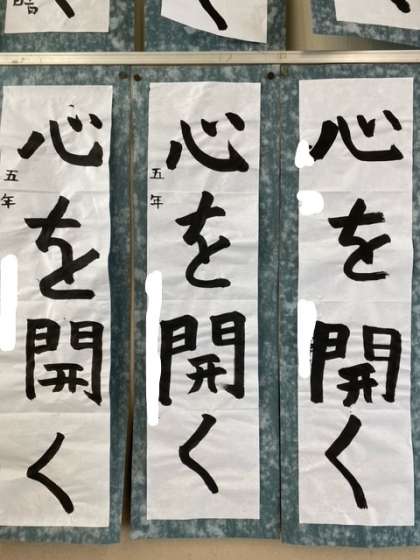 心を開く
心を開く
五年
心を開く
五年